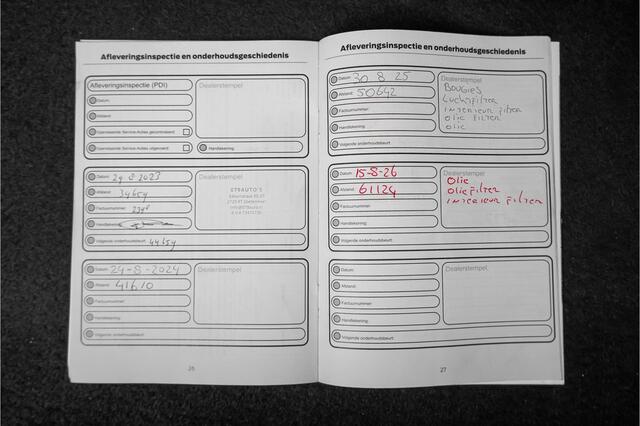 Afleveringsinspectie en onderhoudsgeschiedenis
Afleveringsinspectie (PDI)
Datum:
Afstand:
Factuurnummer:
Openstaande Service-Acties gecontroleerd:
Openstaande Service-Acties uitgevoerd:
Handtekening:
Dealerstempel
Datum: 29 8 2023
Afstand: 34654
Factuurnummer:
Handtekening:
Volgende onderhoudsbeurt: 44654
STBAUTO'S
Datum: 24-8-2024
Afstand: 41610
Factuurnummer:
Handtekening:
Volgende onderhoudsbeurt:
Dealerstempel
26
Afleveringsinspectie en onderhoudsgeschiedenis
Datum: 30 8 25
Afstand: 50642
Factuurnummer:
Handtekening:
Volgende onderhoudsbeurt:
Dealerstempel
BOUGIES
LUCHTFILTER
INTERIEUR FILTER
OLIE FILTER
OLIE
Datum: 15-8-26
Afstand: 61124
Factuurnummer:
Handtekening:
Volgende onderhoudsbeurt:
Dealerstempel
OLIE
OLIEFILTER
INTERIEUR FILTER
Datum:
Afstand:
Factuurnummer:
Handtekening:
Volgende onderhoudsbeurt:
Dealerstempel
27